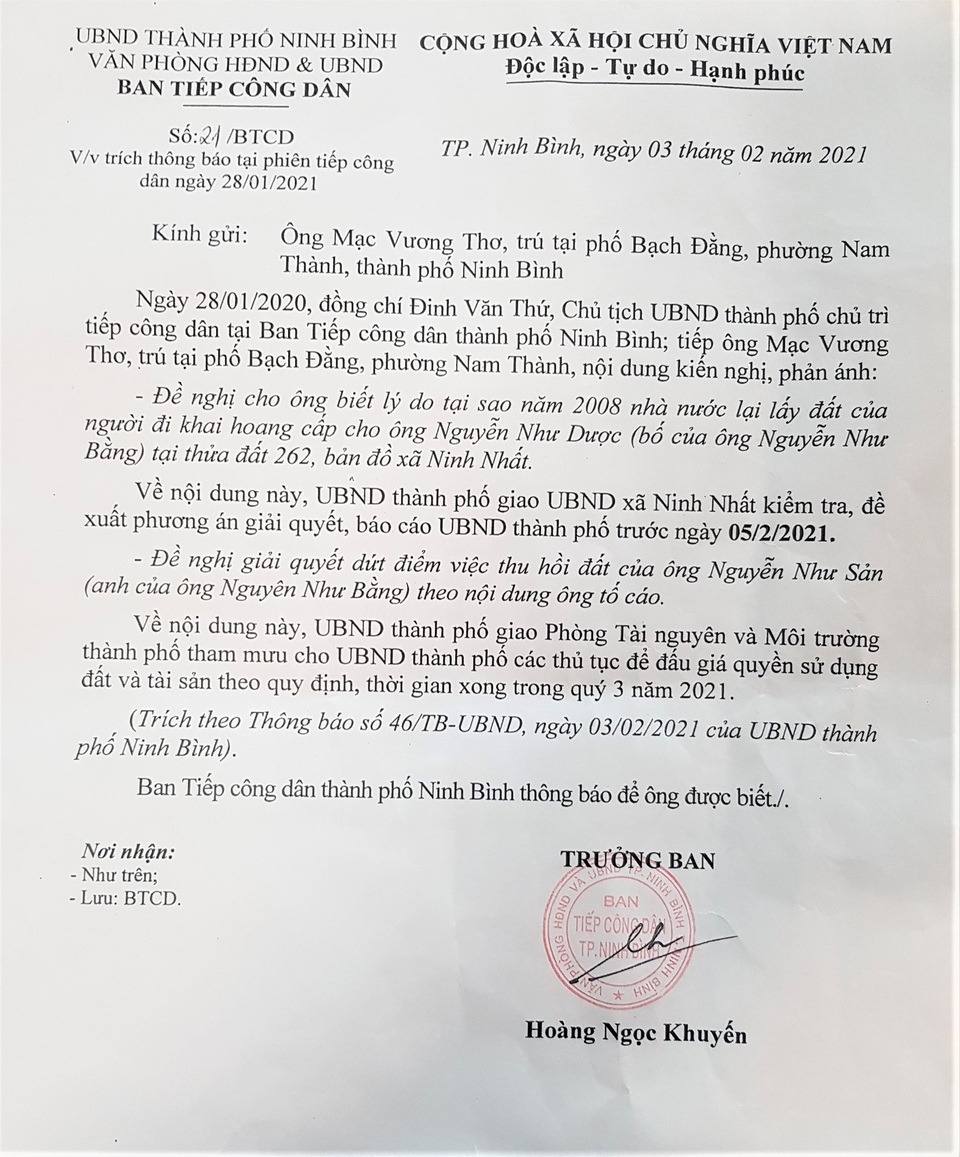 UBND THÀNH PHỐ NINH BÌNH
VĂN PHÒNG HĐND & UBND
BAN TIẾP CÔNG DÂN
CỘNG HOÀ XÃ HỘI CHỦ NGHĨA VIỆT NAM
Độc lập - Tự do - Hạnh phúc
Số:21/BTCD
V/v trích thông báo tại phiên tiếp công
dân ngày 28/01/2021
TP. Ninh Bình, ngày 03 tháng 02 năm 2021
Kính gửi: Ông Mạc Vương Thơ, trú tại phố Bạch Đằng, phường Nam
Thành, thành phố Ninh Bình
Ngày 28/01/2020, đồng chí Đinh Văn Thứ, Chủ tịch UBND thành phố chủ trì
tiếp công dân tại Ban Tiếp công dân thành phố Ninh Bình; tiếp ông Mạc Vương
Thơ, trú tại phố Bạch Đằng, phường Nam Thành, nội dung kiến nghị, phản ánh:
- Đề nghị cho ông biết lý do tại sao năm 2008 nhà nước lại lấy đất của
người đi khai hoang cấp cho ông Nguyễn Như Dược (bố của ông Nguyễn Như
Bằng) tại thửa đất 262, bản đồ xã Ninh Nhất.
Về nội dung này, UBND thành phố giao UBND xã Ninh Nhất kiểm tra, đề
xuất phương án giải quyết, báo cáo UBND thành phố trước ngày 05/2/2021.
- Đề nghị giải quyết dứt điểm việc thu hồi đất của ông Nguyễn Như Sản
(anh của ông Nguyên Như Bằng) theo nội dung ông tố cáo.
Về nội dung này, UBND thành phố giao Phòng Tài nguyên và Môi trường
thành phố tham mưu cho UBND thành phố các thủ tục để đấu giá quyền sử dụng
đất và tài sản theo quy định, thời gian xong trong quý 3 năm 2021.
(Trích theo Thông báo số 46/TB-UBND, ngày 03/02/2021 của UBND thành
phố Ninh Bình).
Ban Tiếp công dân thành phố Ninh Bình thông báo để ông được biết./.
Nơi nhận:
- Như trên;
- Lưu: BTCD.
TRƯỞNG BAN
VĂN PHÒNG HĐND VÀ UBND TP. NINH BÌNH
BAN
TIẾP CÔNG DÂN
TP.NINH BÌNH
Hoàng Ngọc Khuyến